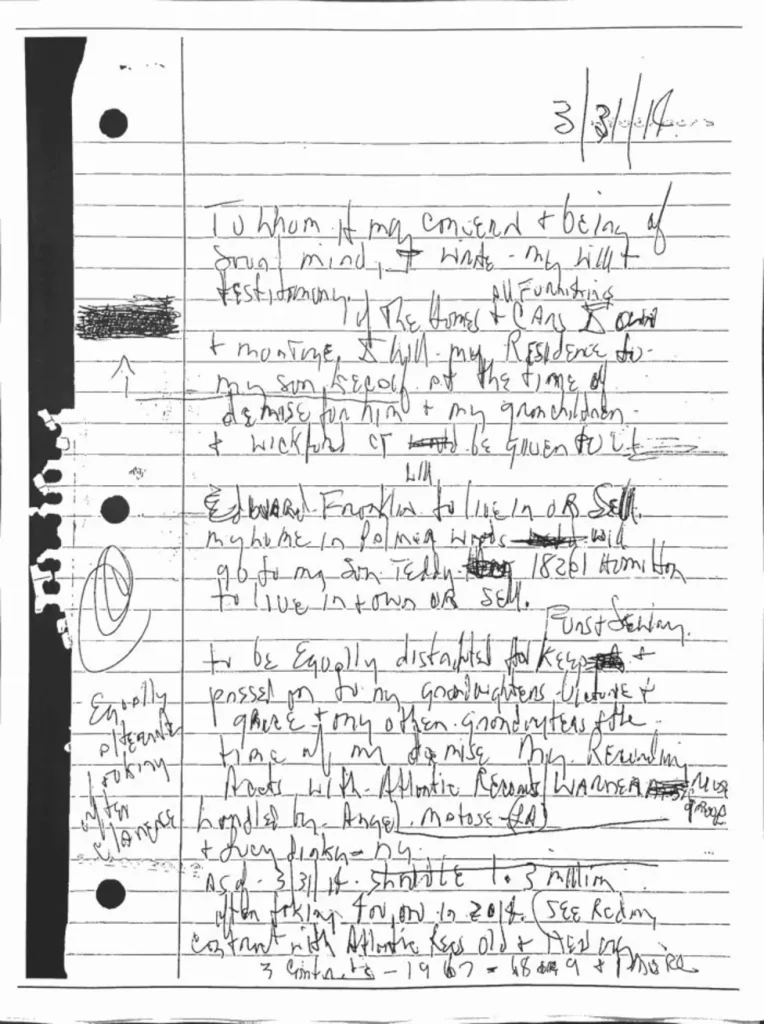 3/31/14
To whom it may concern & being of
sound mind, I write my will &
testimony. All Furnitring
If the Homes & CArs I own
& mortgage I will my Residence to
my son Kecalf at the time of
demise for him & my grandchildren
& wickford ct be given to
Will
Edward Franklin to live in OR Sell.
my home in Palmer woods will
go to my son Teddy 18261 Hamilton
to live in town OR sell.
Furs & Jewlry
to be Equally distributed for keep &
passed on to my grandaughters Victorie &
grace & my other grandaughters at the
time of my demise My Recording
Accts with Atlantic Records/WARNER Music
group
handled by
NY.
As of 3/31/14 1.3 million
after taking in 2014. (SEE Recding
contract with Atlantic Recs old & New
3 contracts - 1967 - 68
Equally
Alternate
Looking
After
Clarence